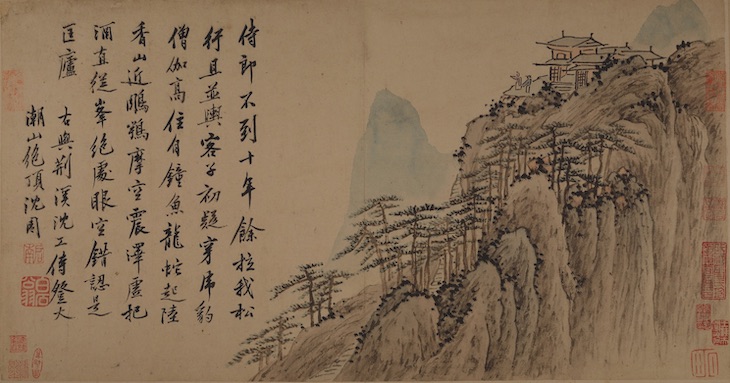 侍郎不到十年餘拉我松
行且並輿客子初疑穿虎豹
僧伽高住自鐘魚龍蛇起陸
香山近鵰鶚摩空震澤虛把
酒直從峯絕處眼空錯認是
匡廬 與荊溪沈工侍登大
潮山絕頂沈周
啟南
白石翁